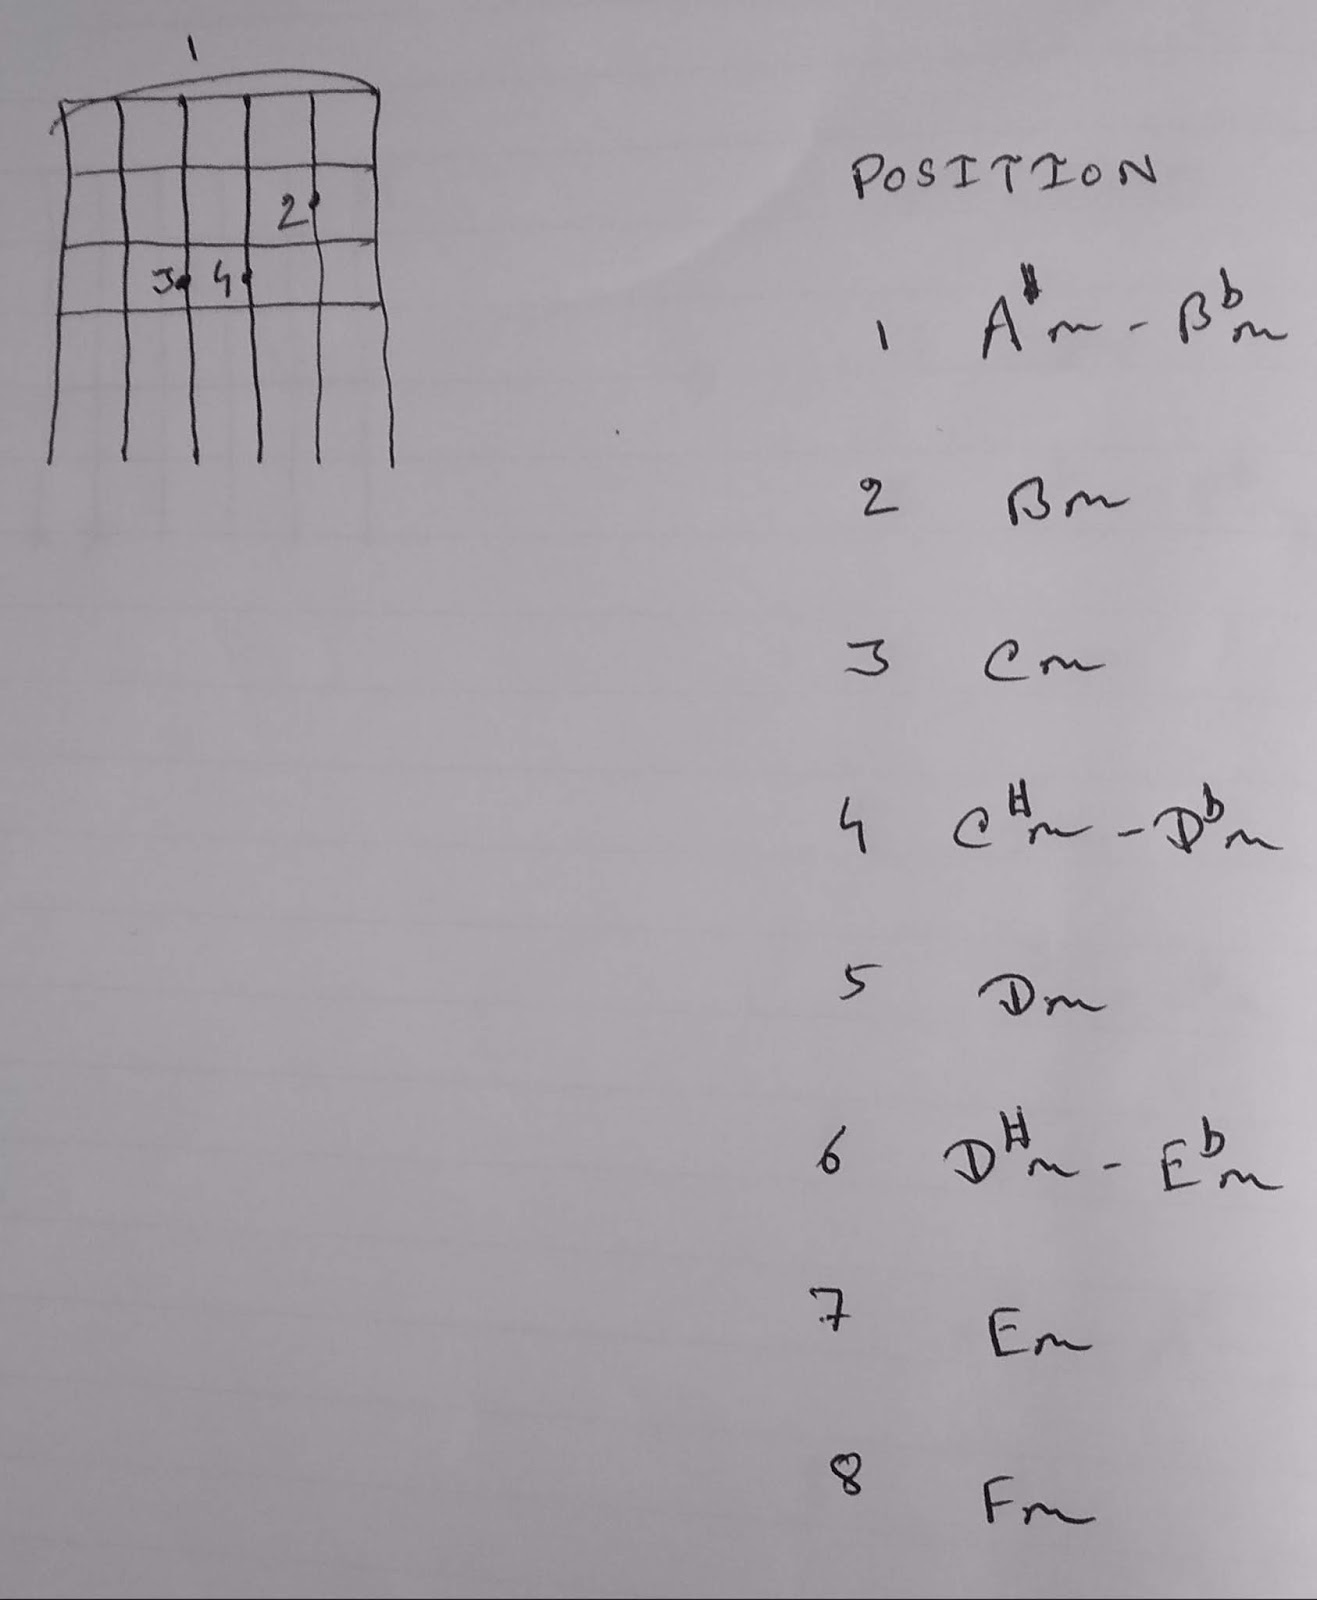 1
2
3 4
POSITION
1 A#m - Bbm
2 Bm
3 Cm
4 C#m - Dbm
5 Dm
6 D#m - Ebm
7 Em
8 Fm